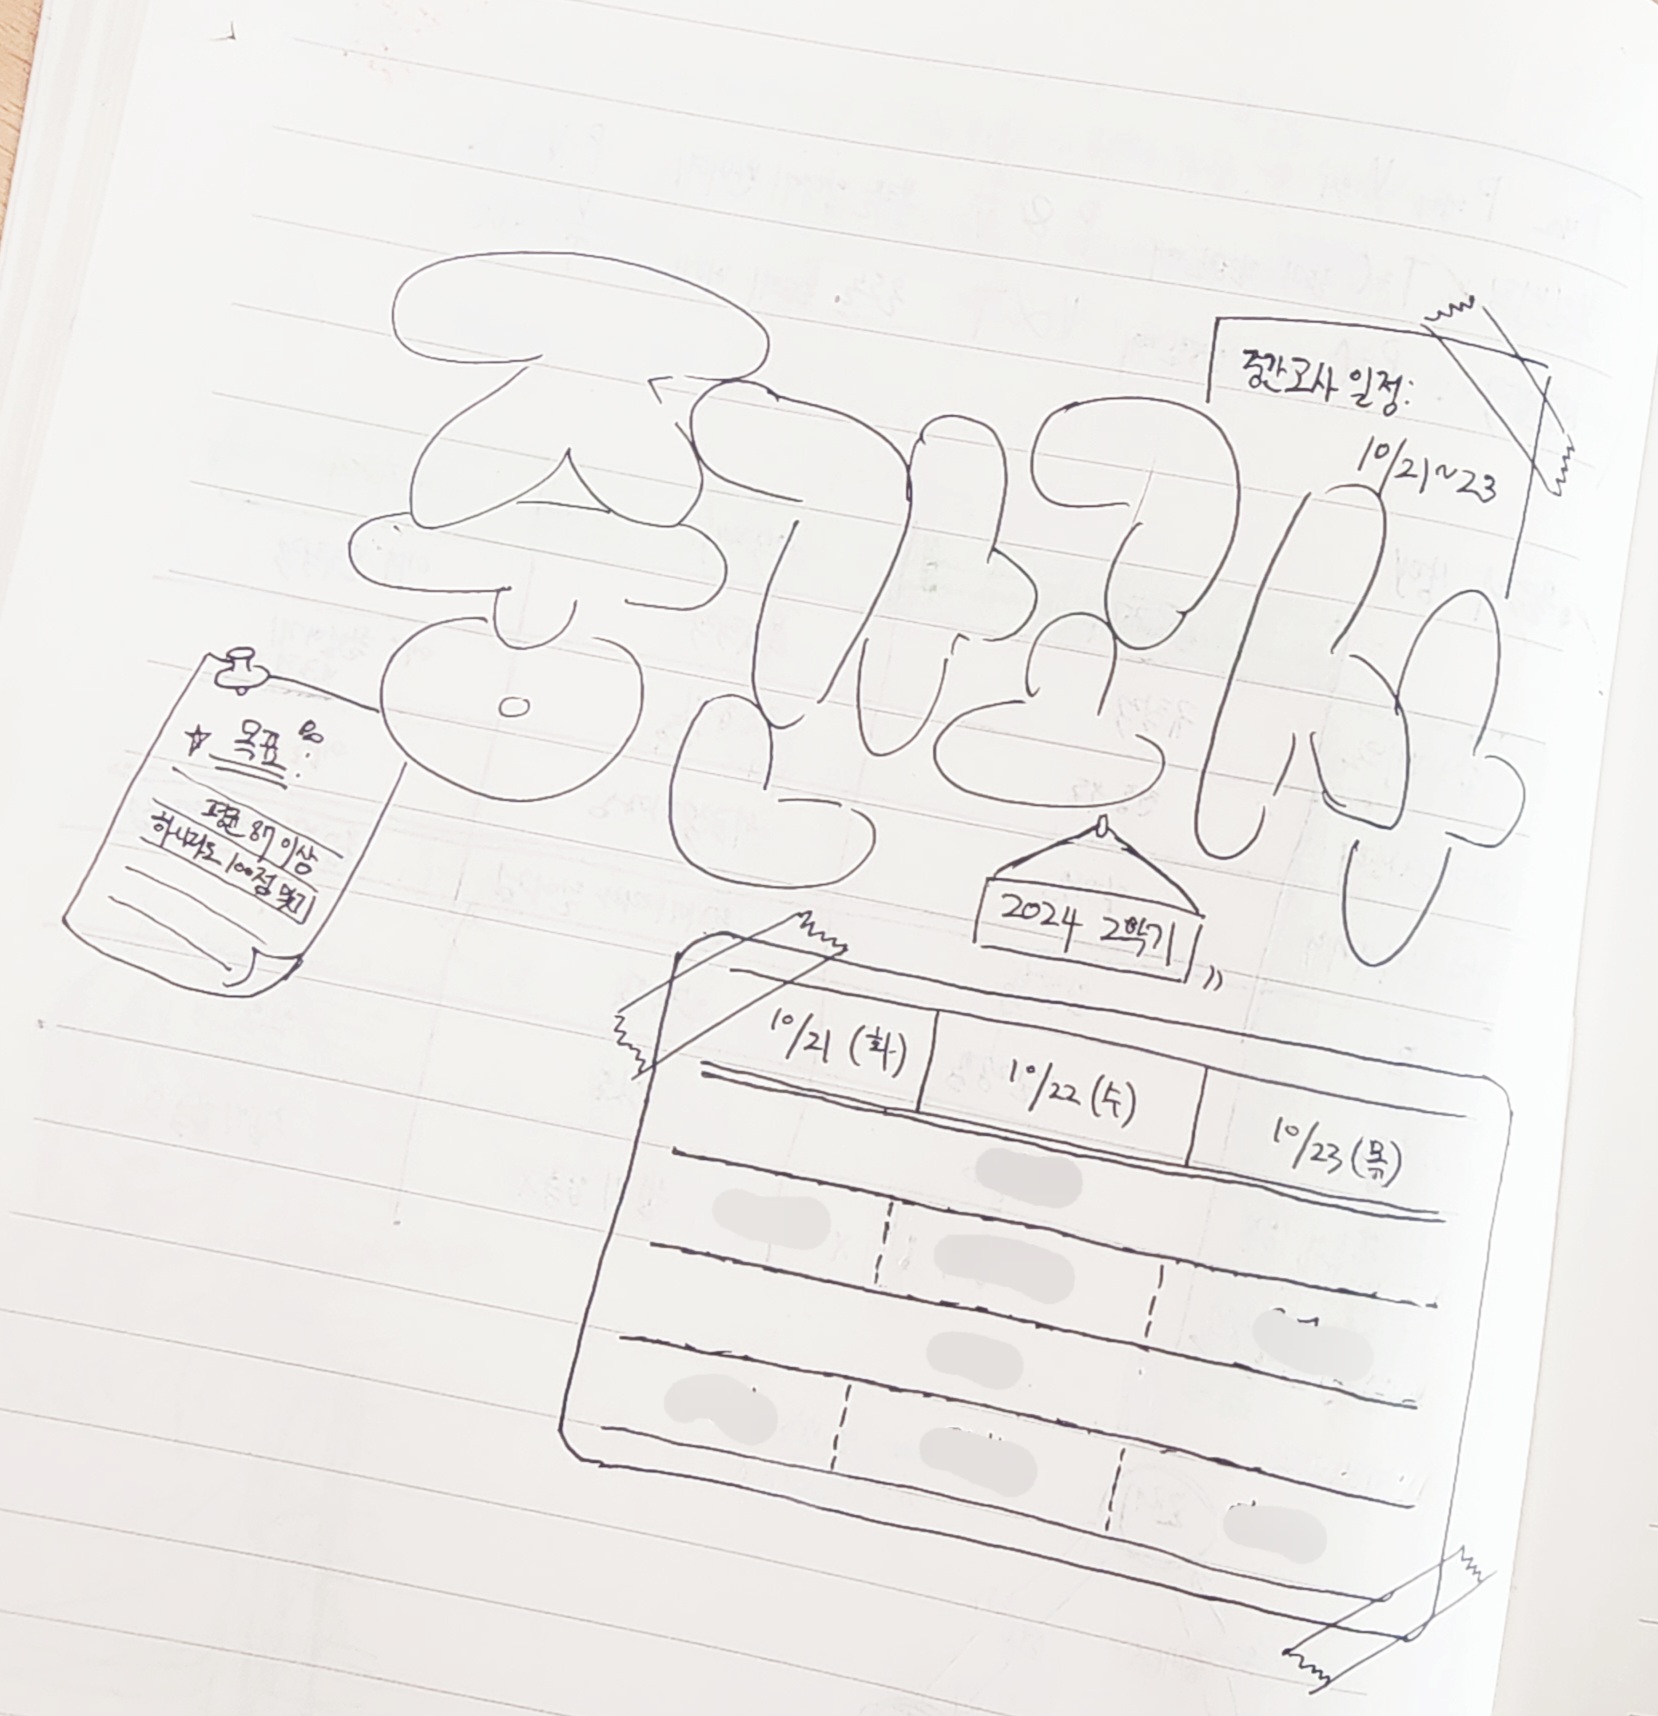 중간고사
중간고사 일정:
10/21~23
☆ 목표 :
평균 87 이상
하나라도 100점 맞기
2024 2학기
10/21 (화)
10/22 (수)
10/23 (목)